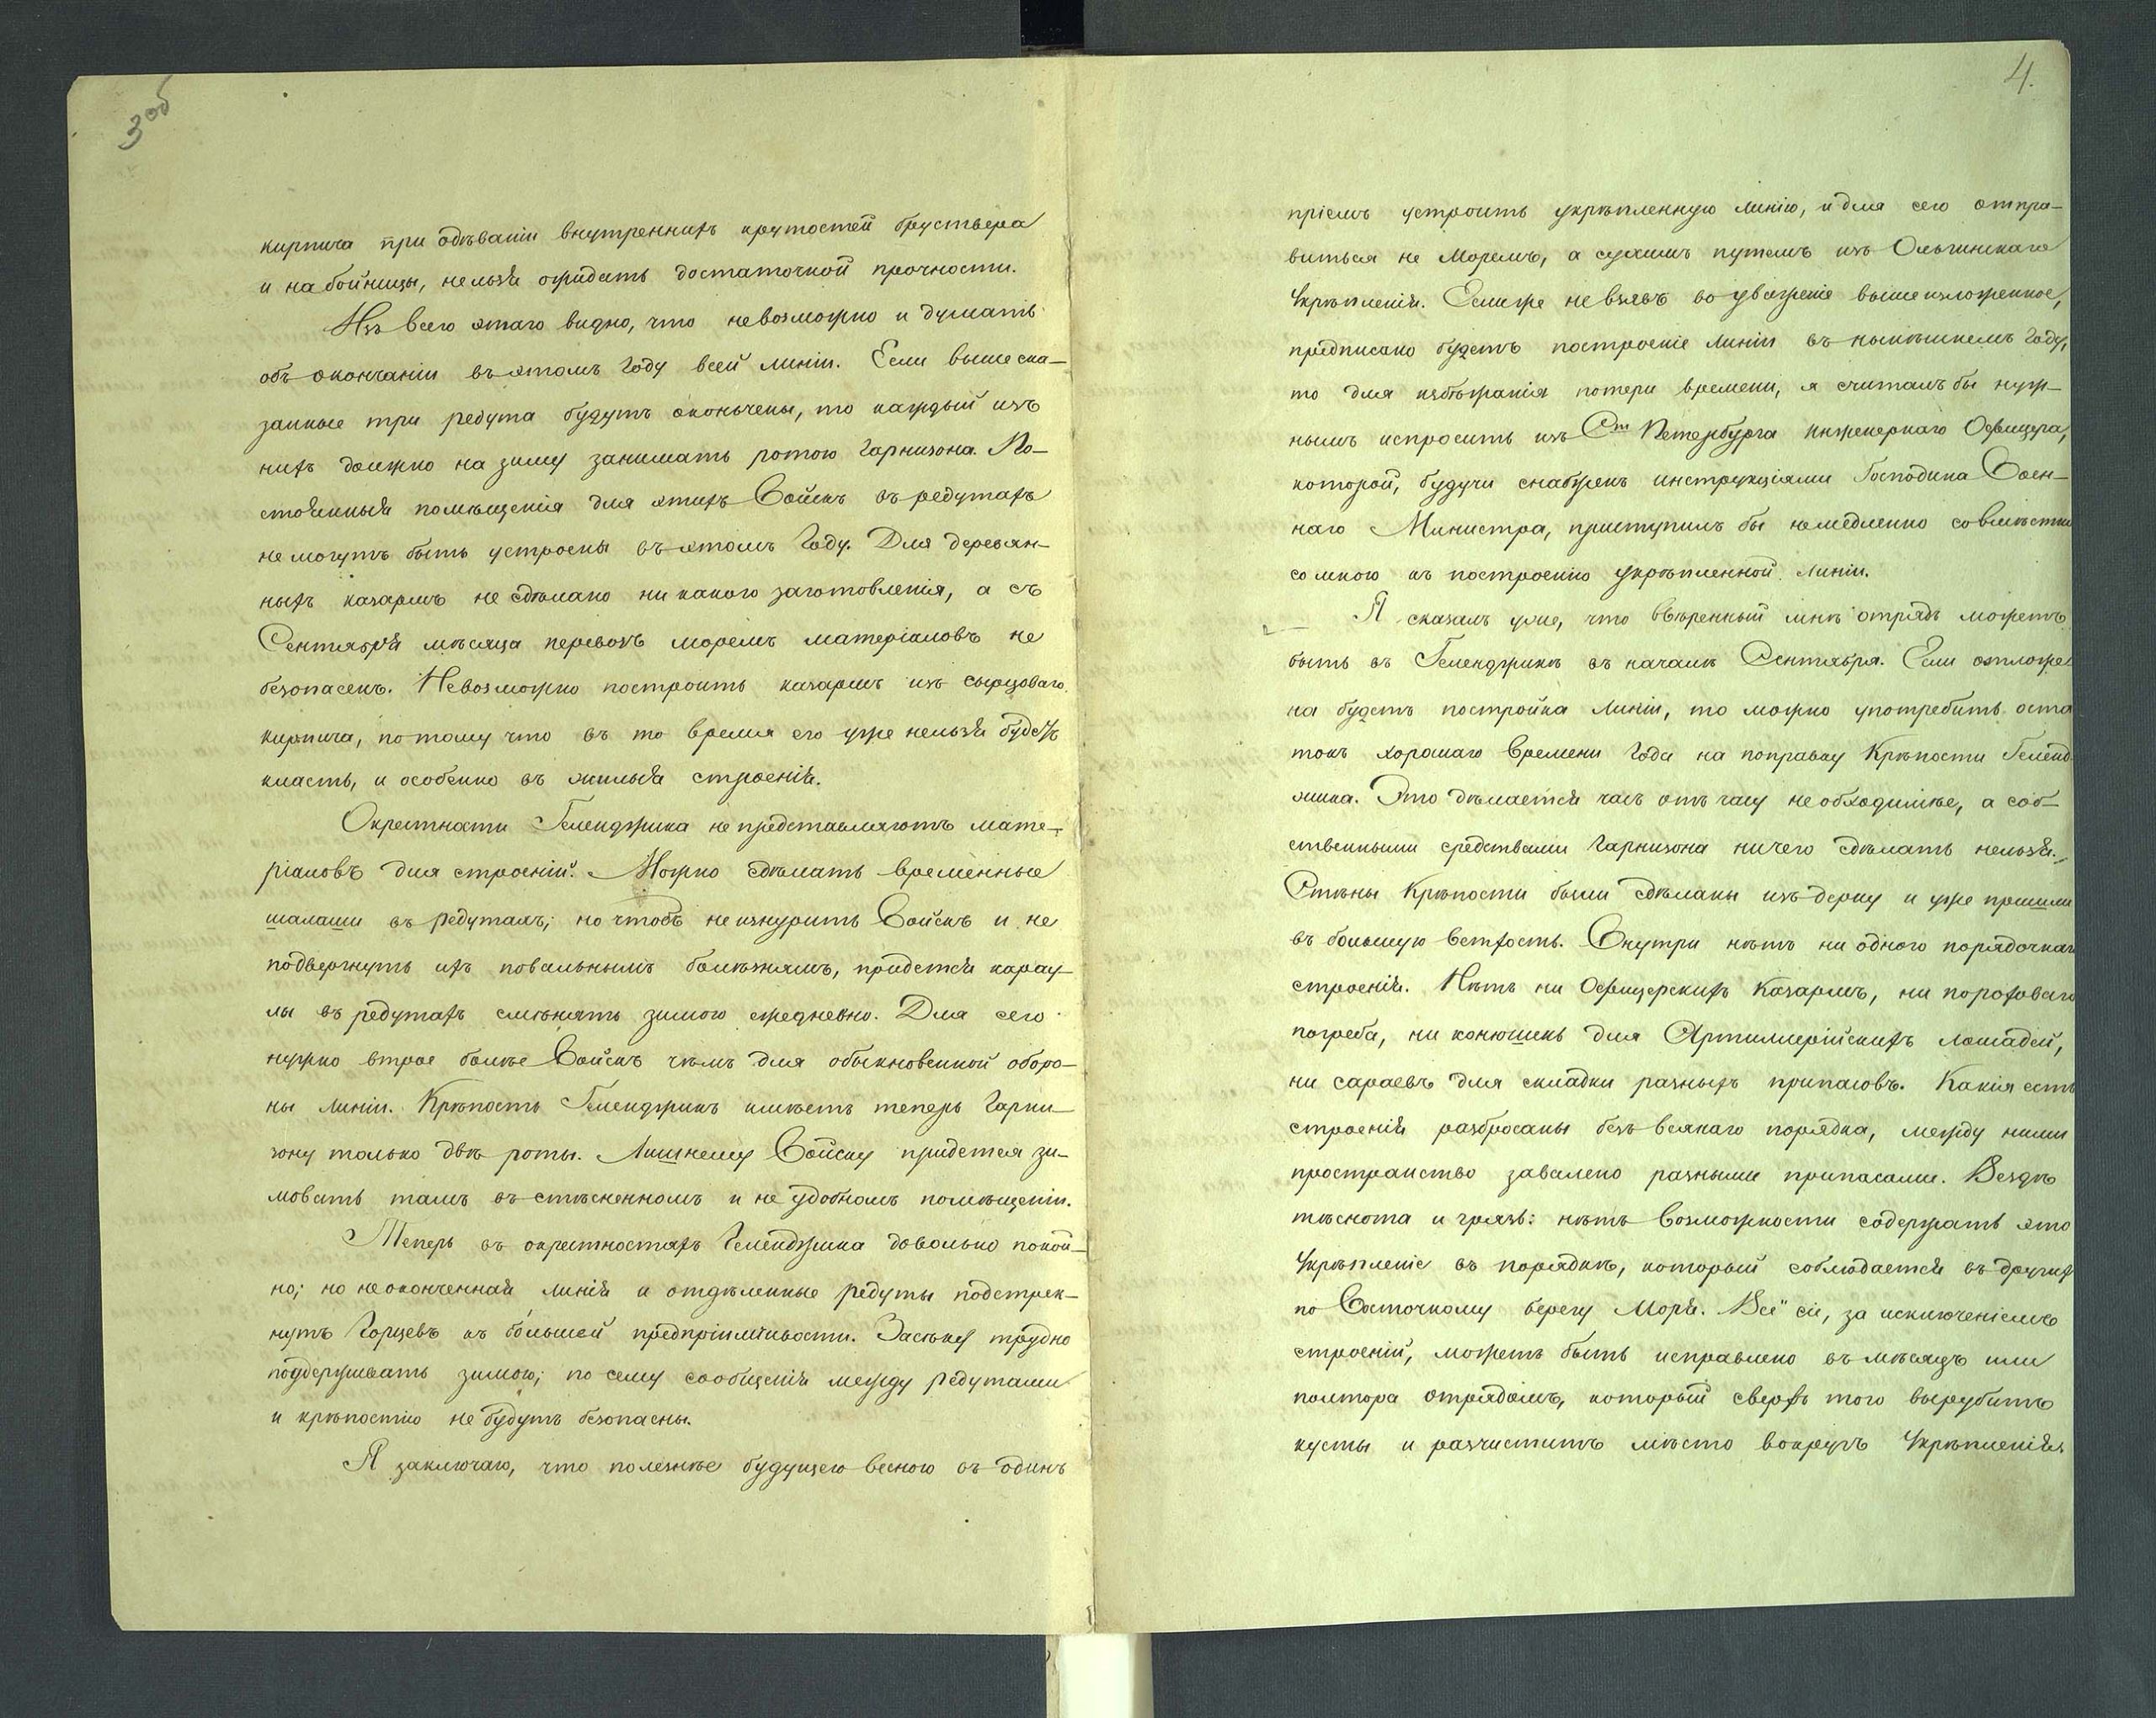 3об
кирпича при одѣваніи внутреннихъ крутостей бруствера
и на бойницы, нельзя ожидать достаточной прочности.
Изъ всего этаго видно, что невозможно и думать
объ окончаніи въ этомъ Году всей линіи. Если вышеска-
занные три редута будутъ оконьчены, то каждый изъ
нихъ должно на зиму занимать ротою Гарнизона. По-
стоянныя помѣщенія для этихъ Войскъ въ редутахъ
не могутъ быть устроены въ этомъ Году. Для деревян-
ныхъ казармъ не сдѣлано ни какого заготовленія, а съ
Сентября мѣсяца перевозъ моремъ матеріаловъ не
безопасенъ. Невозможно построить казармъ изъ сырцоваго
кирпича, потому что въ то время его уже нельзя будетъ
класть, и особенно въ жилыя строенія.
Окрестности Геленджика не представляютъ мате-
ріаловъ для строеній. Можно сдѣлать временные
шалаши въ редутахъ; но чтобъ не изнурить Войскъ и не
подвергнуть ихъ повальнымъ болѣзнямъ, придется карау-
лы въ редутахъ смѣнять зимою ежедневно. Для сего
нужно втрое болѣе Войскъ чѣмъ для обыкновенной оборо-
ны линіи. Крѣпость Геленджикъ имѣетъ теперь Гарни-
зону только двѣ роты. Лишнему Войску придется зи-
мовать тамъ въ стѣсненномъ и не удобномъ помѣщеніи.
Теперь въ окрестностяхъ Геленджика довольно покой-
но; но неоконченная линія и отдѣленные редуты подстрек-
нутъ Горцевъ къ большей предпріимчивости. Засѣку трудно
поддерживать зимою; по сему сообщенія между редутами
и крѣпостію не будутъ безопасны.
Я заключаю, что полезнѣе будущею весною въ одинъ
4.
пріемъ устроить укрѣпленную линію, и для сего отпра-
виться не Моремъ, а сухимъ путемъ изъ Ольгинскаго
Укрѣпленія. Если же не взявъ во уваженіе вышеизложенное,
предписано будетъ построеніе линіи въ нынѣшнемъ Году,
то для избѣжанія потери времени, я считалъ бы нуж-
нымъ испросить изъ Ст Петербурга инженернаго Офицера,
которой, будучи снабженъ инструкціями Господина Воен-
наго Министра, приступилъ бы немедленно совмѣстно
со мною къ построенію укрѣпленной линіи.
Я сказалъ уже, что ввѣренный мнѣ отрядъ можетъ
быть въ Геленджикѣ въ началѣ Сентября. Если отложе
на будетъ постройка линіи, то можно употребить оста
токъ хорошаго Времени Года на поправку Крѣпости Геленд
жика. Это дѣлается часъ отъ часу необходимѣе, а соб-
ственными средствами Гарнизона ничего сдѣлать нельзя.
Стѣны Крѣпости были сдѣланы изъ дерну и уже пришли
въ большую ветхость. Внутри нѣтъ ни одного порядочнаго
строенія. Нѣтъ ни Офицерскихъ Казармъ, ни пороховаго
погреба, ни конюшенъ для Артиллерійскихъ лошадей,
ни сараевъ для складки разныхъ припасовъ. Какія есть
строенія разбросаны безъ всякаго порядка, между ними
пространство завалено разными припасами. Вездѣ
тѣснота и грязь: нѣтъ Возможности содержать это
Укрѣпленіе въ порядкѣ, который соблюдается въ другихъ
по Восточному берегу Моря. Всё сіе, за исключеніемъ
строеній, можетъ быть исправлено въ мѣсяцъ или
полтора отрядомъ, который сверхъ того вырубитъ
кусты и разчиститъ мѣсто вокругъ Укрѣпленія